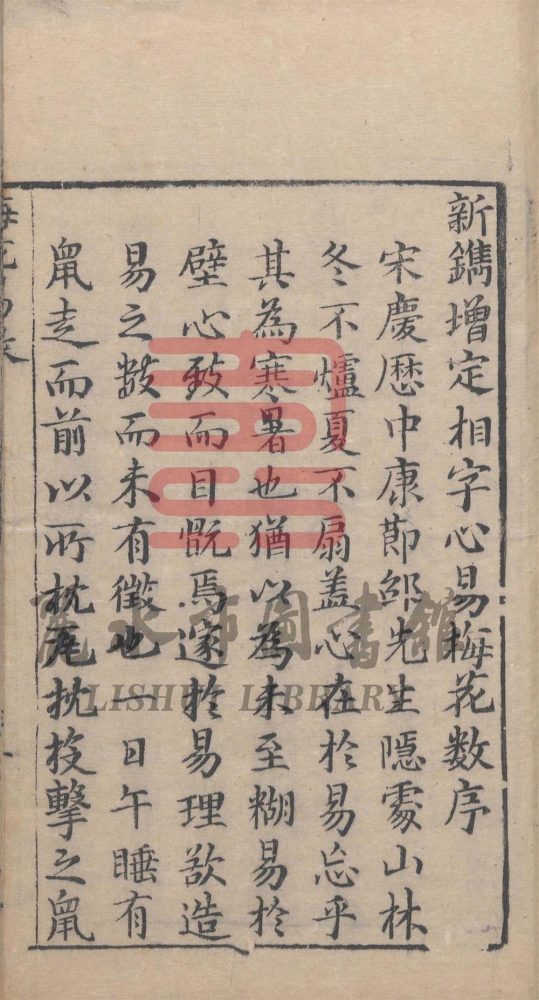 新鐫增定相字心易梅花数序
宋慶厯中康節邵先生隱處山林
冬不爐夏不扇盖心在於易忘乎
其為寒暑也猶以為未至糊易於
壁心致而目慨焉邃於易理欲造
易之數而未有徵也一日午睡有
鼠走而前以所枕瓦枕投擊之鼠
麗水市圖書館
LISHUI LIBRARY